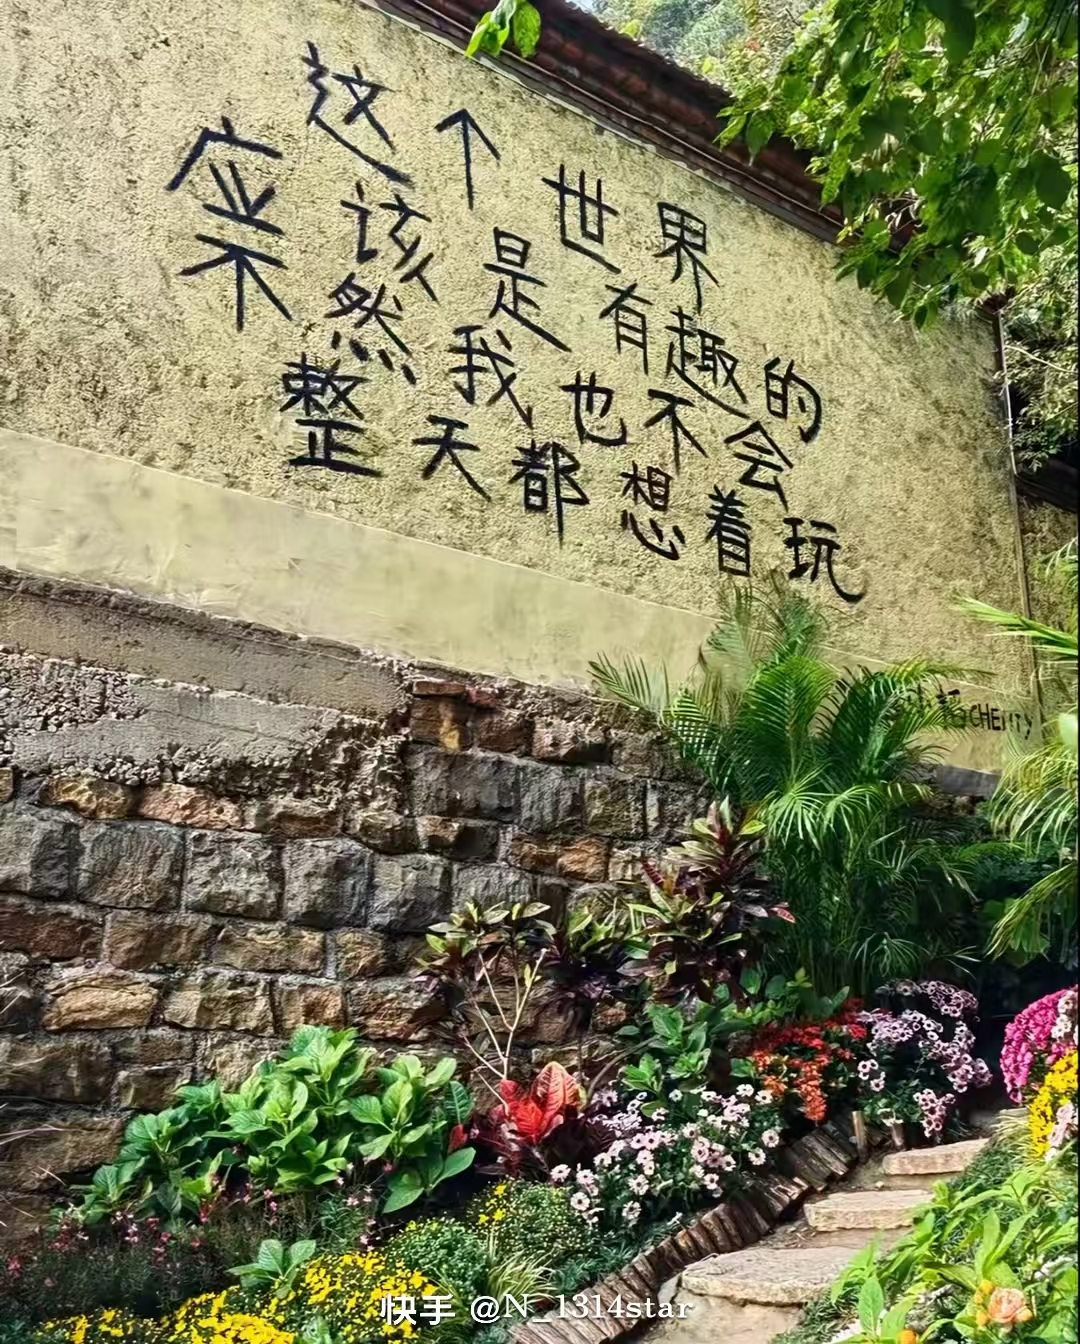 这个世界
应该是有趣的
不然我也不会
整天都想着玩
快手 @N_1314star